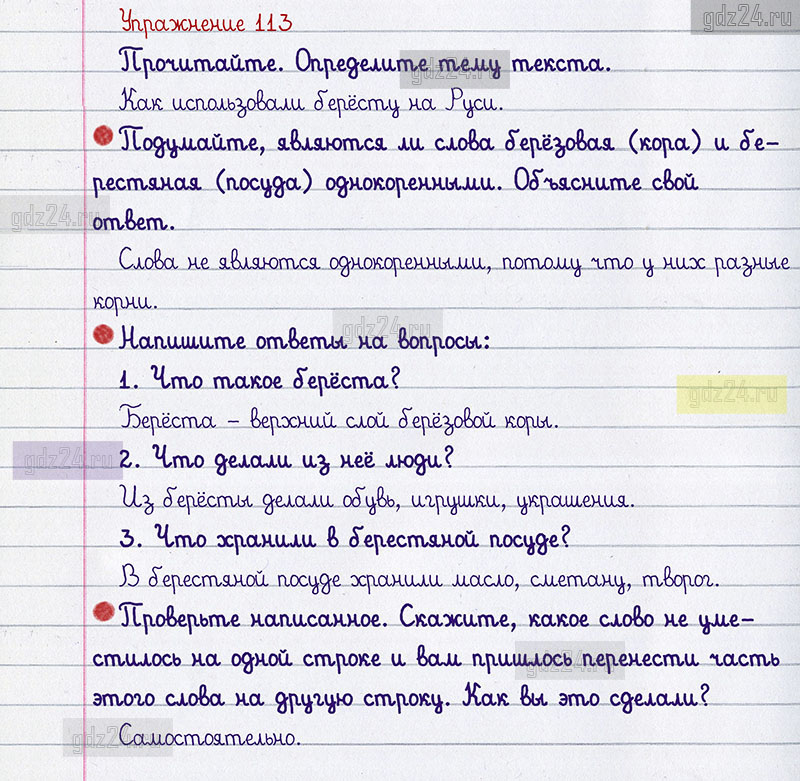 gdz24.ru
Упражнение 113
Прочитайте. Определите тему текста.
gdz24.ru
Как использовали берёсту на Руси.
Подумайте, являются ли слова берёзовая (кора) и бе-
рестяная (посуда) однокоренными. Объясните свой
gdz24.ru
ответ.
Слова не являются однокоренными, потому что у них разные
корни.
gdz24.ru
Напишите ответы на вопросы:
1. Что такое берёста?
gdz24.ru
Берёста – верхний слой берёзовой коры.
gdz24.ru
2. Что делали из неё люди?
Из берёсты делали обувь, игрушки, украшения.
3. Что хранили в берестяной посуде?
В берестяной посуде хранили масло, сметану, творог.
Проверьте написанное. Скажите, какое слово не уме-
стилось на одной строке и вам пришлось перенести часть
gdz24.ru
этого слова на другую строку. Как вы это сделали?
gdz24.ru
Самостоятельно.